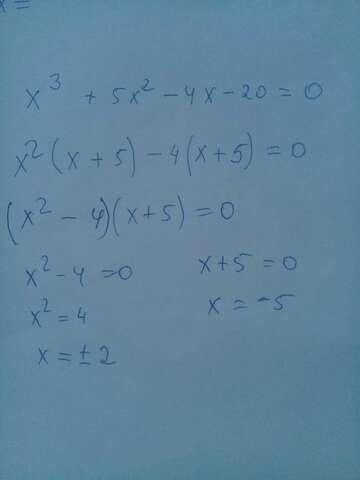 x =
x³ + 5x² - 4x - 20 = 0
x²(x + 5) - 4(x + 5) = 0
(x² - 4)(x + 5) = 0
x² - 4 = 0 x + 5 = 0
x² = 4 x = -5
x = ± 2